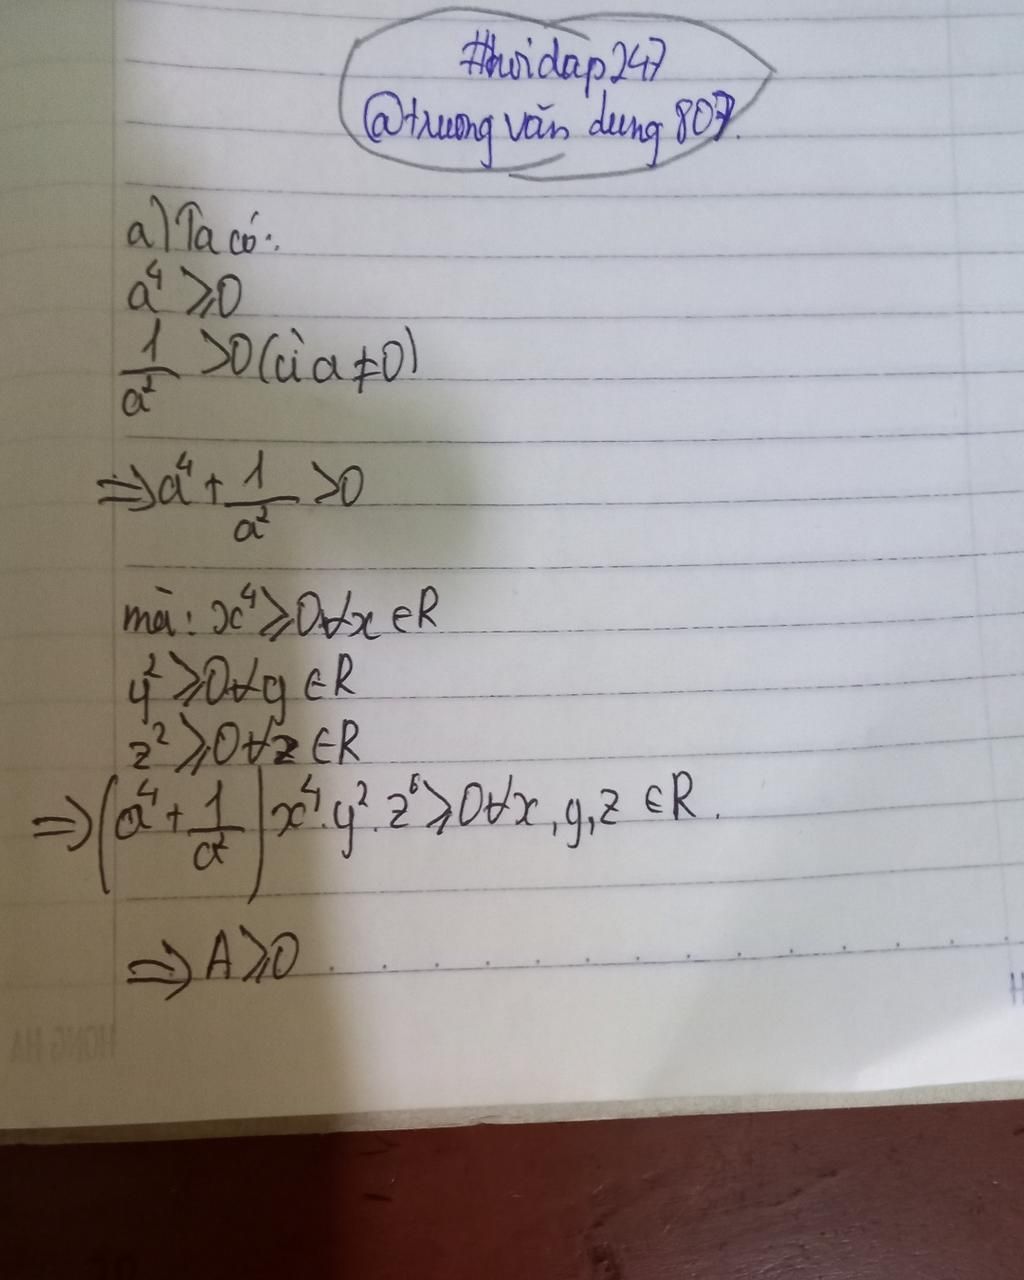 #hoidap247
@truong văn dung 807.
a) Ta có:
a⁴ ⩾ 0
1/a² > 0 (vì a ≠ 0)
⇒ a⁴ + 1/a² > 0
mà: x⁴ ⩾ 0 ∀x ∈ R
y² ⩾ 0 ∀y ∈ R
z² ⩾ 0 ∀z ∈ R
⇒ (a⁴ + 1/a²) x⁴.y².z⁶ ⩾ 0 ∀x, y, z ∈ R.
⇒ A ⩾ 0
HONG HA